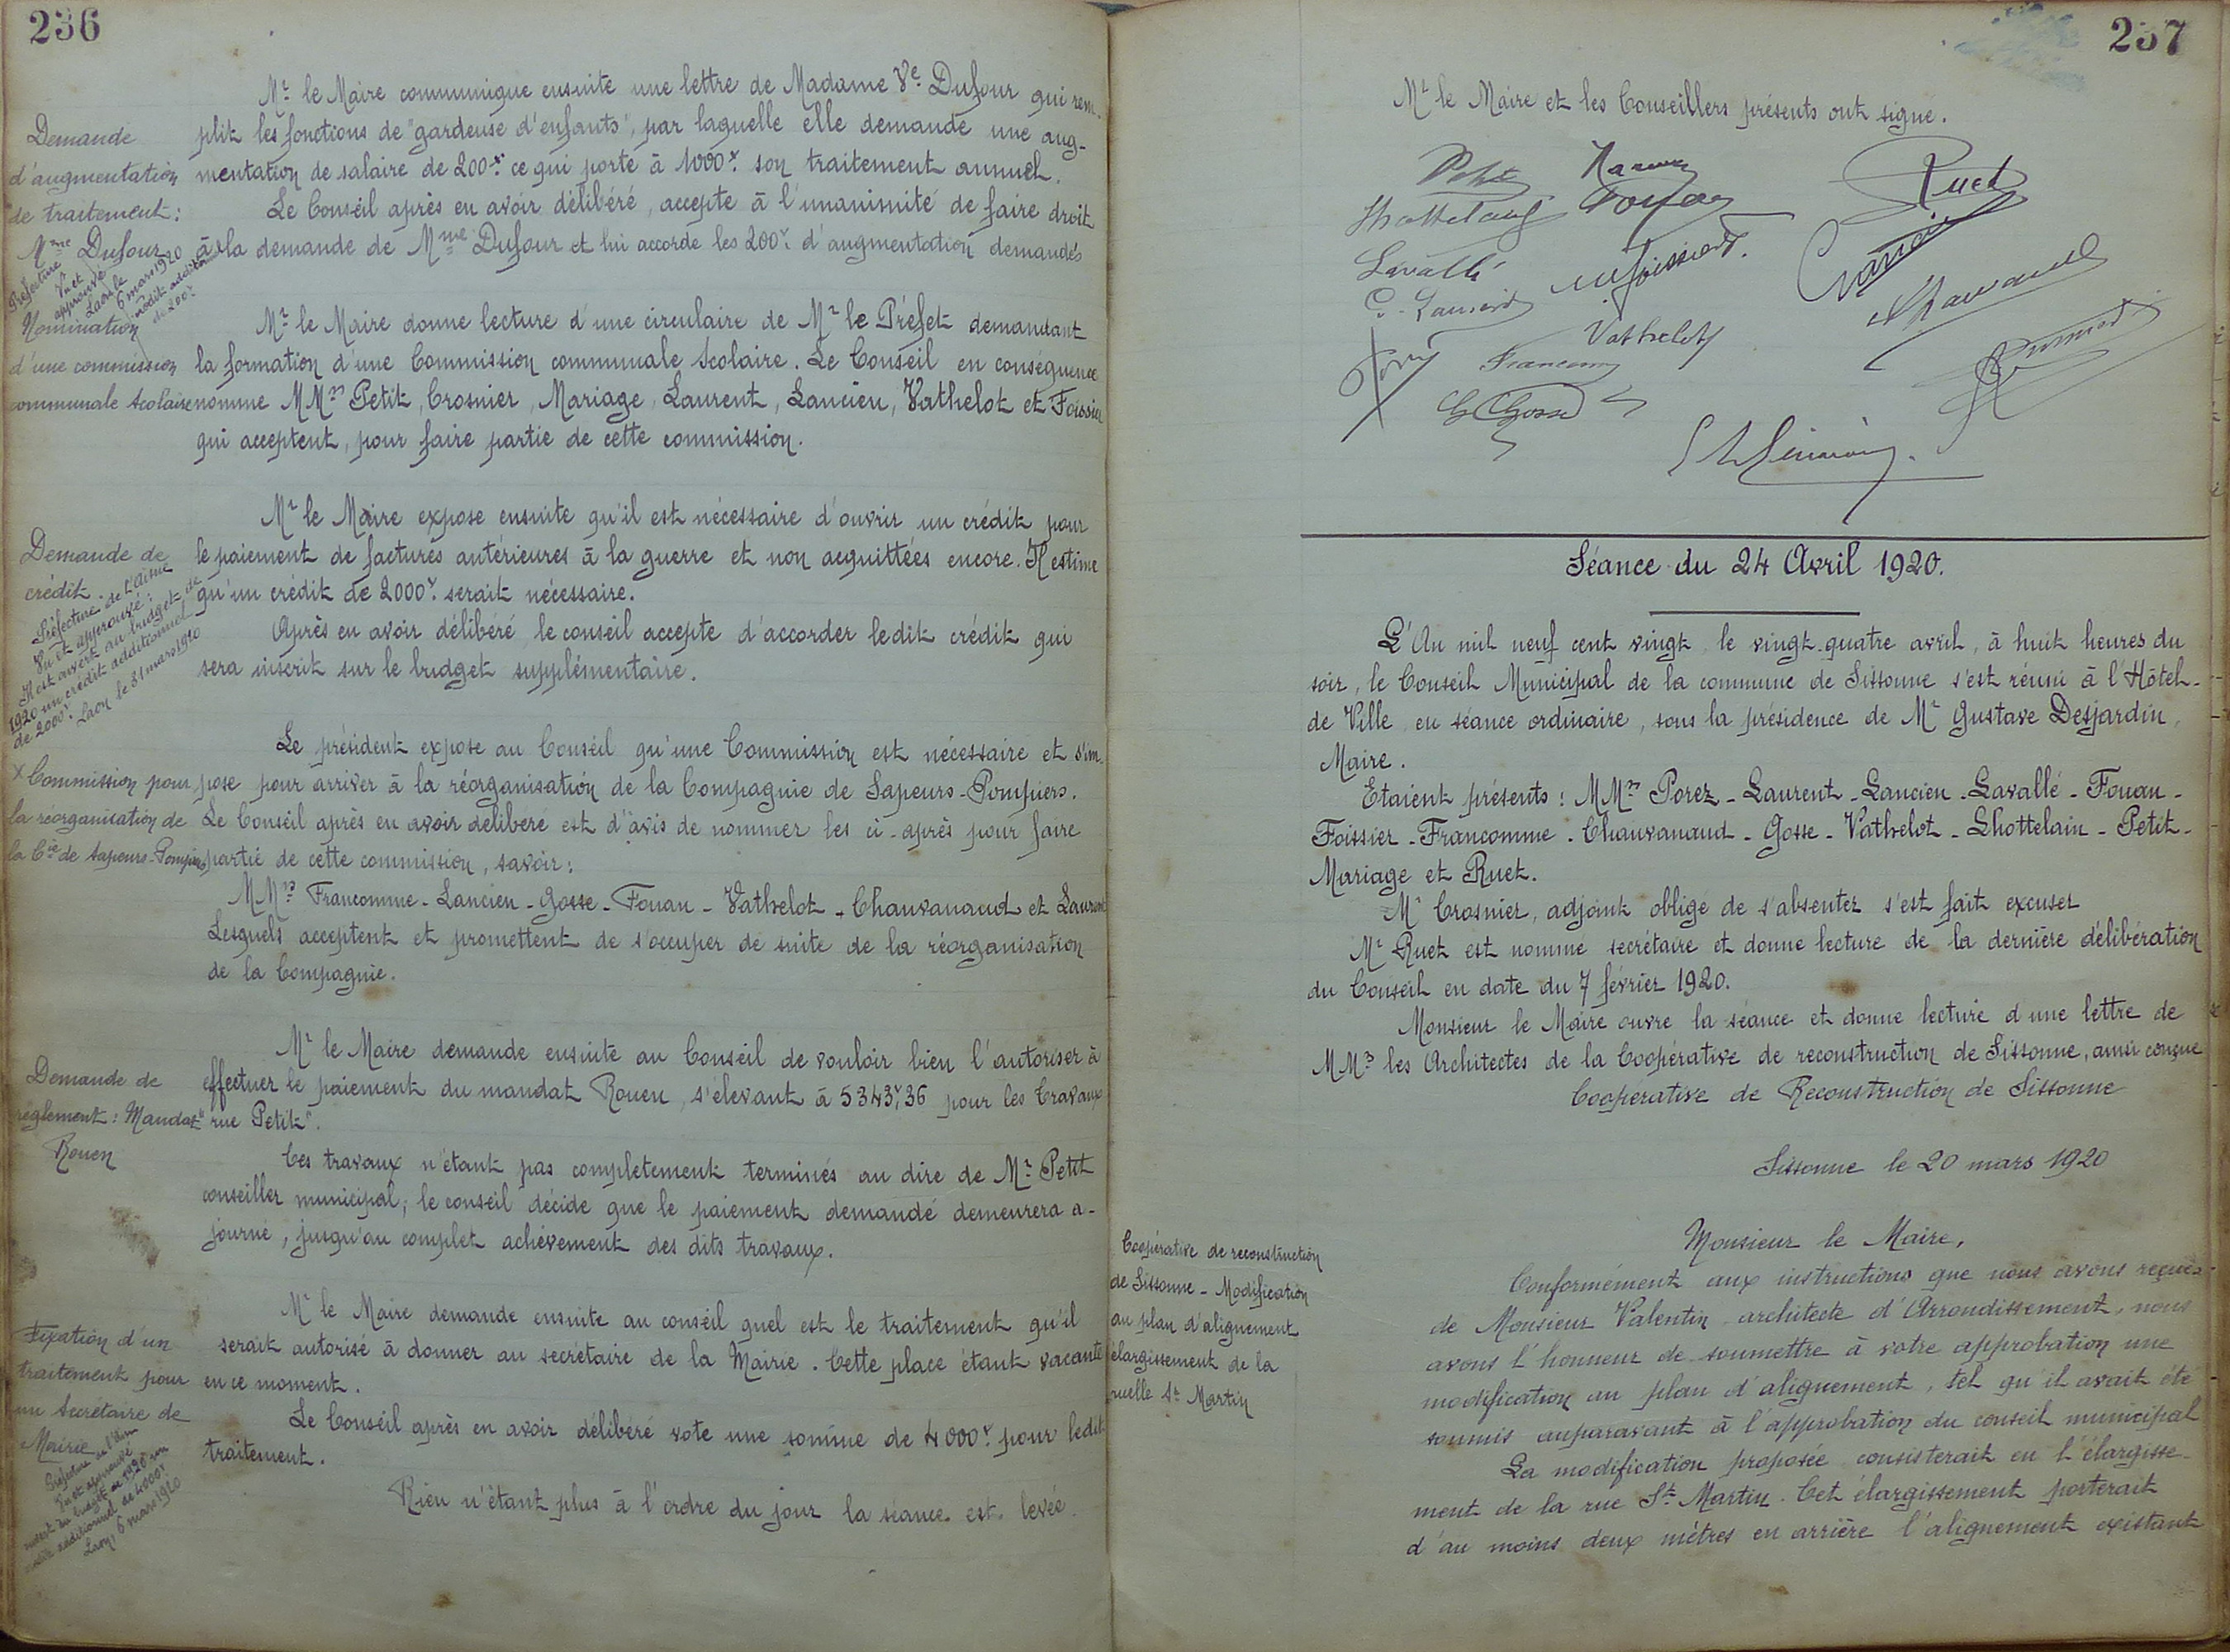 236
Mr le Maire communique ensuite une lettre de Madame Ve Dufour qui rem-
plit les fonctions de "gardeuse d'enfants", par laquelle elle demande une aug-
mentation de salaire de 200f ce qui porte à 1000f son traitement annuel.
Le Conseil après en avoir délibéré, accepte à l'unanimité de faire droit
à la demande de Mme Dufour et lui accorde les 200f d'augmentation demandés
Demande
d'augmentation
de traitement :
Mme Dufour
Préfecture
Vu et
approuvé
Laon le
6 mars 1920
crédit additionnel
de 200f
Mr le Maire donne lecture d'une circulaire de Mr le Préfet demandant
la formation d'une Commission communale scolaire. Le Conseil en conséquence
nomme MMrs Petit, Crosnier, Mariage, Laurent, Lancien, Vathelot et Foissier
qui acceptent, pour faire partie de cette commission.
Nomination
d'une commission
communale scolaire
Mr le Maire expose ensuite qu'il est nécessaire d'ouvrir un crédit pour
le paiement de factures antérieures à la guerre et non acquittées encore. Il estime
qu'un crédit de 2000f serait nécessaire.
Après en avoir délibéré le conseil accepte d'accorder ledit crédit qui
sera inscrit sur le budget supplémentaire.
Demande de
crédit.
Préfecture de l'Aisne
Vu et approuvé :
Il est ouvert au budget de
1920 un crédit additionnel
de 2000f. Laon le 31 mars 1920
Le président expose au Conseil qu'une Commission est nécessaire et s'im-
pose pour arriver à la réorganisation de la Compagnie de Sapeurs-Pompiers.
Le Conseil après en avoir délibéré est d'avis de nommer les ci-après pour faire
partie de cette commission, savoir :
MMrs Francomme - Lancien - Gosse - Fouan - Vathelot - Chauvanaud et Laurent
Lesquels acceptent et promettent de s'occuper de suite de la réorganisation
de la Compagnie.
x Commission pour
la réorganisation de
la Cie de Sapeurs-Pompiers
Mr le Maire demande ensuite au Conseil de vouloir bien l'autoriser à
effectuer le paiement du mandat Rouen, s'élevant à 5343f,36 pour les travaux
"rue Petit".
Ces travaux n'étant pas complètement terminés au dire de Mr Petit
conseiller municipal, le conseil décide que le paiement demandé demeurera a-
journé, jusqu'au complet achèvement des dits travaux.
Demande de
règlement : Mandat
Rouen
Mr le Maire demande ensuite au conseil quel est le traitement qu'il
serait autorisé à donner au secrétaire de la Mairie. Cette place étant vacante
en ce moment.
Le Conseil après en avoir délibéré vote une somme de 4000f pour ledit
traitement.
Fixation d'un
traitement pour
un Secrétaire de
Mairie
Préfecture de l'Aisne
Vu et approuvé
ouvert au budget de 1920 un
crédit additionnel de 4000f
Laon, 6 mars 1920
Rien n'étant plus à l'ordre du jour la séance est levée.
237
Mr le Maire et les Conseillers présents ont signé.
Petit
Ruet
Lhottelain
Fouan
Lavallé
Foissier
C. Laurent
Lancien
Chauvanaud
Vathelot
Porez
Francomme
G. Gosse
Séance du 24 Avril 1920.
L'An mil neuf cent vingt le vingt-quatre avril, à huit heures du
soir, le Conseil Municipal de la commune de Sissonne s'est réuni à l'Hôtel-
de Ville en séance ordinaire, sous la présidence de Mr Gustave Desjardin,
Maire.
Etaient présents : MMrs Porez - Laurent - Lancien - Lavallé - Fouan -
Foissier - Francomme - Chauvanaud - Gosse - Vathelot - Lhottelain - Petit -
Mariage et Ruet.
Mr Crosnier, adjoint obligé de s'absenter s'est fait excuser
Mr Ruet est nommé secrétaire et donne lecture de la dernière délibération
du Conseil en date du 7 février 1920.
Monsieur le Maire ouvre la séance et donne lecture d'une lettre de
MMrs les Architectes de la Coopérative de reconstruction de Sissonne, ainsi conçue
Coopérative de Reconstruction de Sissonne
Sissonne le 20 mars 1920
Monsieur le Maire,
Conformément aux instructions que nous avons reçues
de Monsieur Valentin architecte d'Arrondissement, nous
avons l'honneur de soumettre à votre approbation une
modification au plan d'alignement, tel qu'il avait été
soumis auparavant à l'approbation du conseil municipal
La modification proposée consisterait en l'élargisse-
ment de la rue St Martin. Cet élargissement porterait
d'au moins deux mètres en arrière l'alignement existant
Coopérative de reconstruction
de Sissonne - Modification
au plan d'alignement
élargissement de la
ruelle St Martin